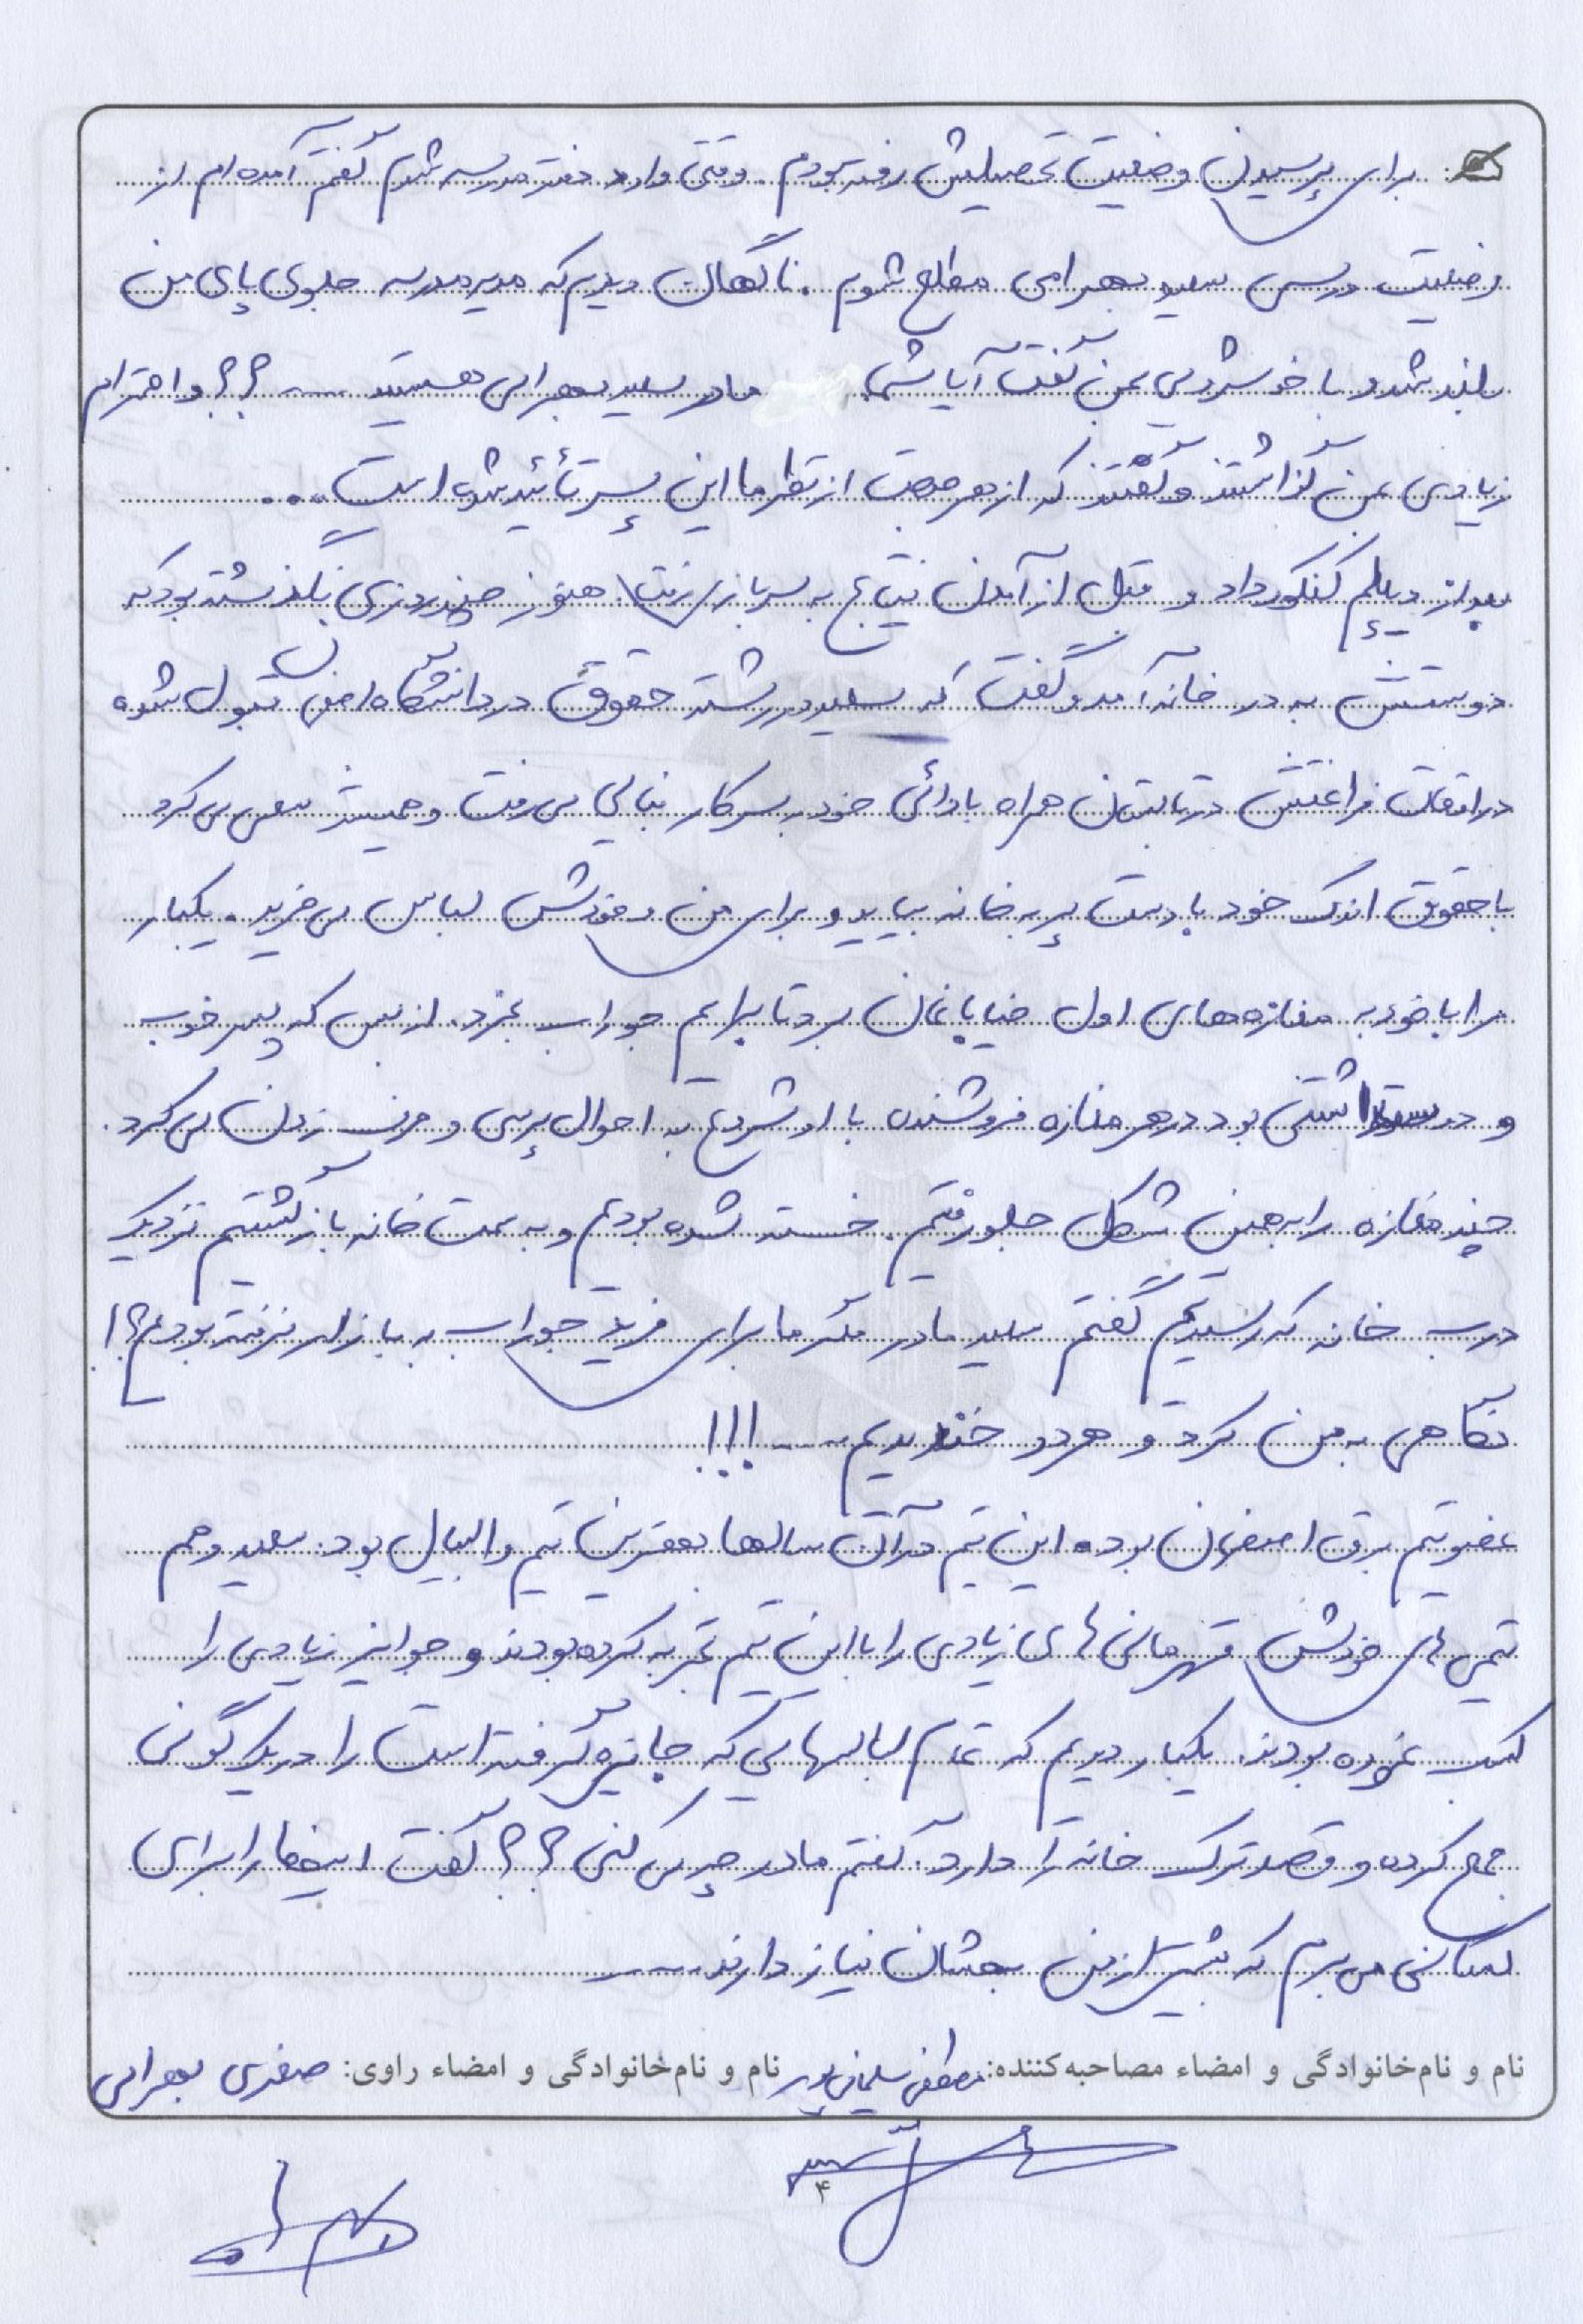 برای پرسیدن وضعیت تحصیلیش رفته بودم. وقتی وارد دفتر مدرسه شدم گفتم آمده ام از
وضعیت درسی سعید بهرامی مطلع شوم. ناگهان دیدم که مدیر مدرسه جلوی پای من
بلند شد و با خوشرویی بمن گفت آیا شما مادر سعید بهرامی هستید ..... ؟؟ و احترام
زیادی بمن گذاشتند و گفتند که از هر جهت از نظر ما این پسر تأئید شده است...
بعد از دیپلم کنکور داد و قبل از آمدن نتایج به سربازی رفت. هنوز چند روزی نگذشته بود که
دوستش به در خانه آمد و گفت که سعید در رشته حقوق در دانشگاه اصفهان قبول شده
در اوقات فراغتش در تابستان همراه با دائی خود بر سر کار بنایی می رفت و همیشه سعی می کرد
با حقوق اندک خود با دست پر به خانه بیاید و برای من و خودش لباس می خرید. یکبار
مرا با خود به مغازه های اول خیابانمان برد تا برایم جوراب بخرد. از بس که پسر خوب
و دوستداشتنی بود در هر مغازه فروشنده با او شروع به احوال پرسی و حرف زدن می کرد.
چند مغازه را به همین شکل جلو رفتیم. خسته شده بودم و به سمت خانه بازگشتیم نزدیک
درب خانه که رسیدیم گفتم سعید مادر مگر ما برای خرید جوراب به بازار نرفته بودیم؟!
نگاهی به من کرد و هر دو خندیدیم ... !!!
عضو تیم برق اصفهان بود. این تیم در آن سالها بهترین تیم والیبال بود. سعید و هم
تیمی های خودش قهرمانی های زیادی را با این تیم تجربه کرده بودند و جوایز زیادی را
کسب نموده بودند. یکبار دیدم که تمام لباسهایی که جایزه گرفته است را در یک گونی
جمع کرده و قصد ترک خانه را دارد. گفتم مادر چه می کنی ؟؟ گفت اینها را برای
کسانی می برم که بیشتر از من بهشان نیاز دارند....
نام و نام‌خانوادگی و امضاء مصاحبه‌کننده: مصطفی سلیمانی پور نام و نام‌خانوادگی و امضاء راوی: صغری بهرامی
۴